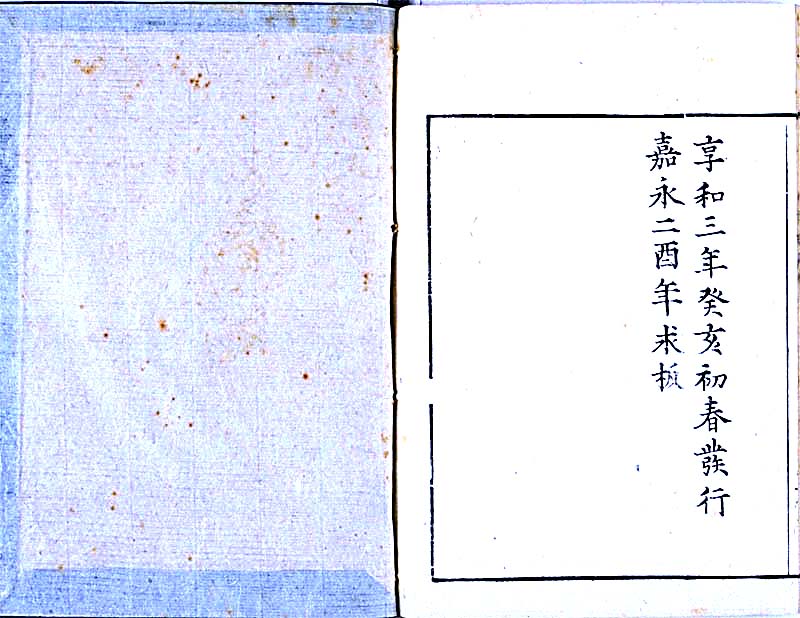 享和三年癸亥初春発行
嘉永二酉年求板